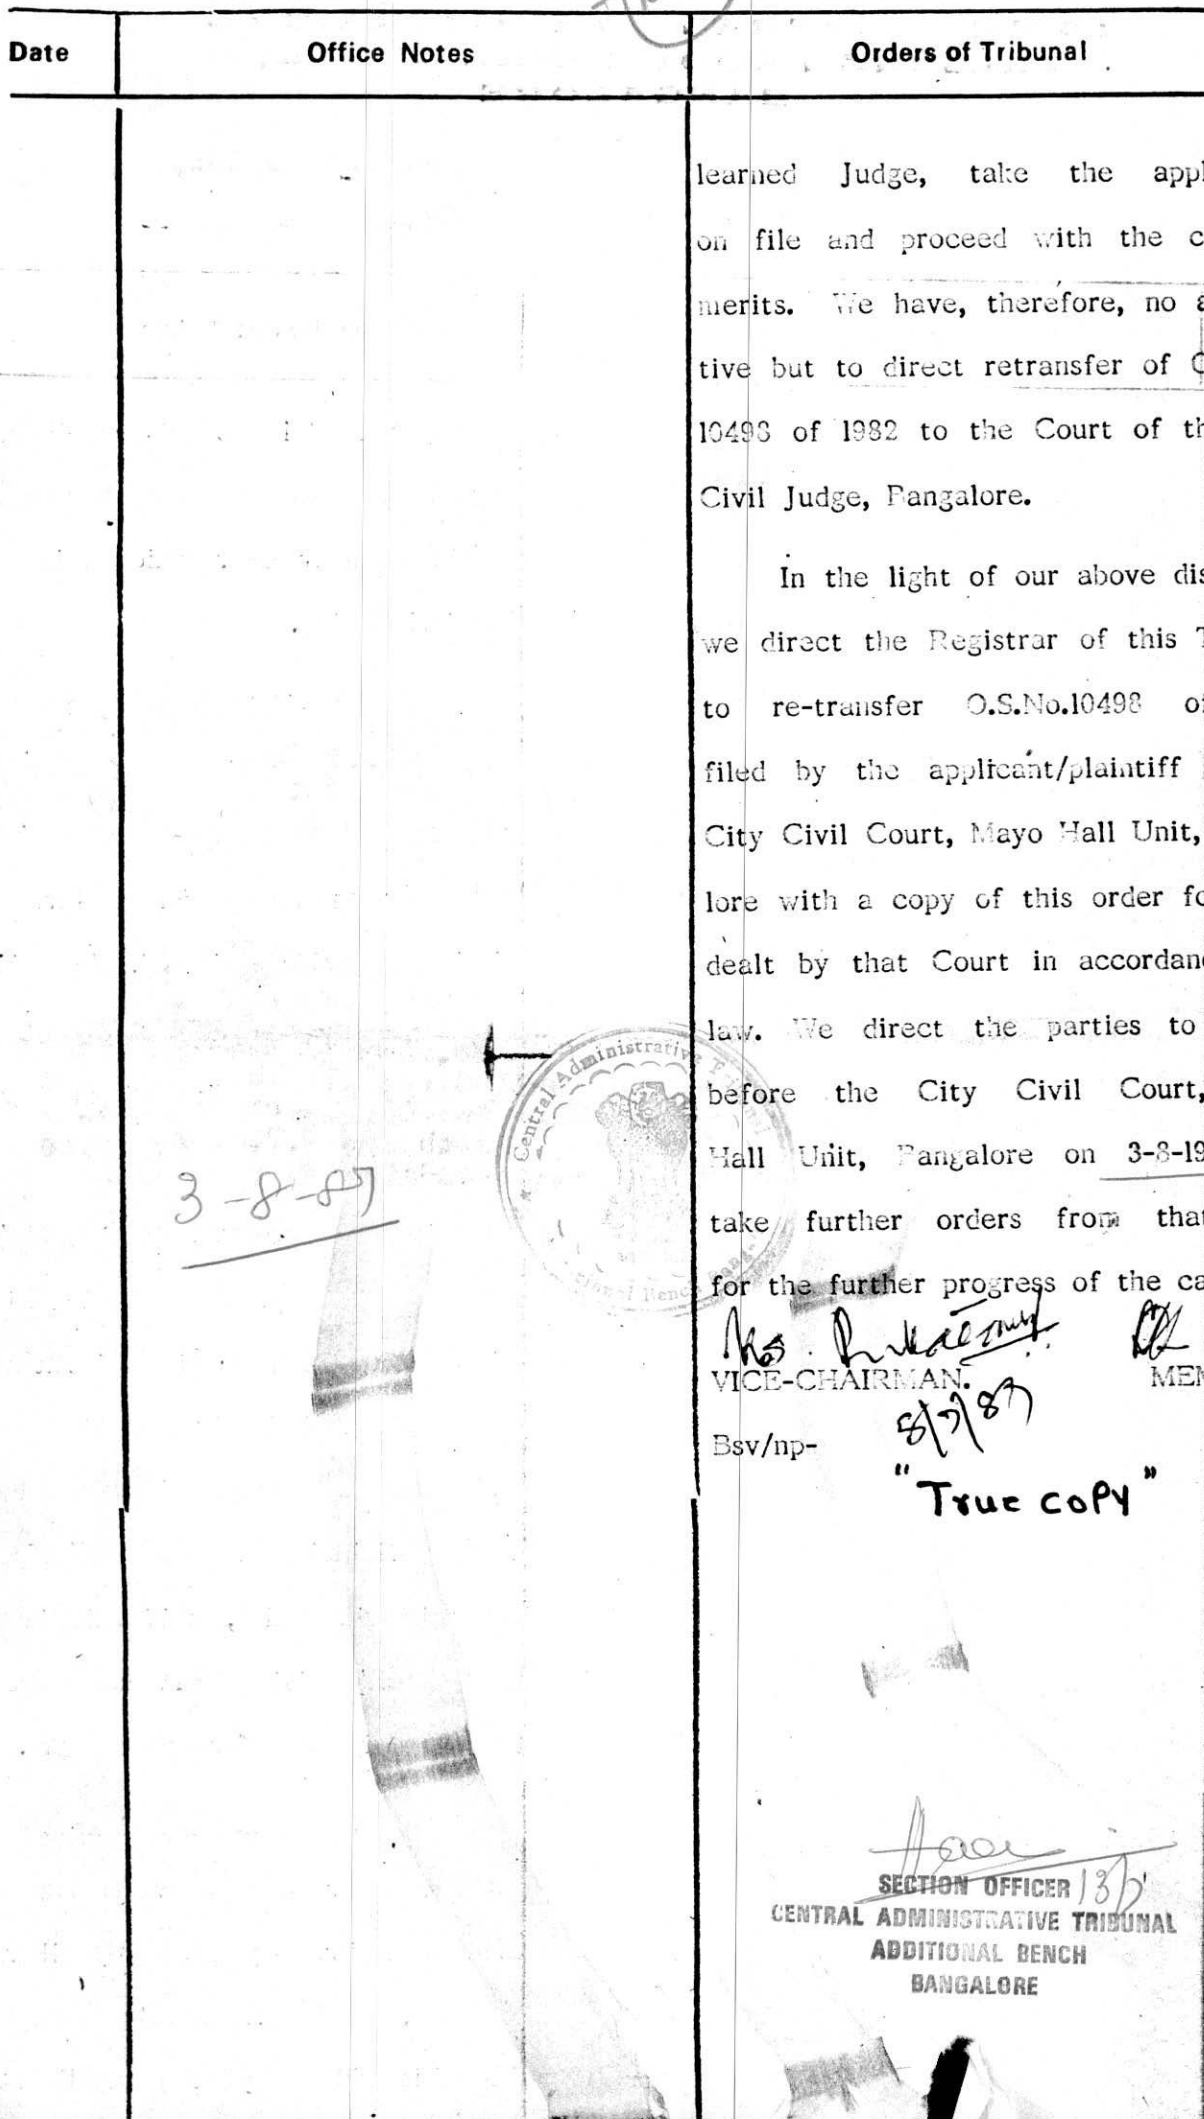 Date Office Notes Orders of Tribunal
learned Judge, take the appl
on file and proceed with the c
merits. We have, therefore, no a
tive but to direct retransfer of
10498 of 1982 to the Court of th
Civil Judge, Bangalore.
In the light of our above dis
we direct the Registrar of this T
to re-transfer O.S.No.10498 of
filed by the applicant/plaintiff
City Civil Court, Mayo Hall Unit,
lore with a copy of this order fo
dealt by that Court in accordanc
law. We direct the parties to
before the City Civil Court,
Hall Unit, Bangalore on 3-8-19
take further orders from that
for the further progress of the ca
3-8-87
Central Administrative Tribunal
VICE-CHAIRMAN. MEM
8/7/87
Bsv/np-
"True copy"
SECTION OFFICER 13/7
CENTRAL ADMINISTRATIVE TRIBUNAL
ADDITIONAL BENCH
BANGALORE